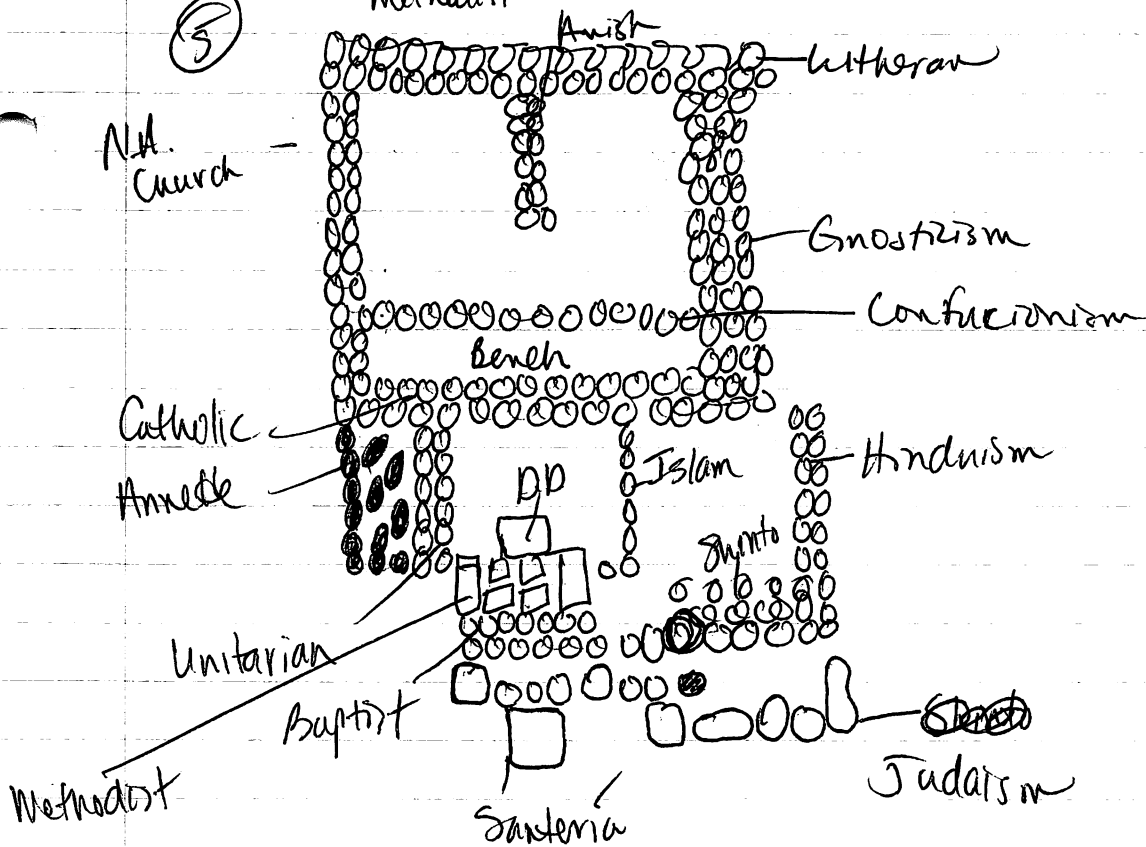 Methodist
5
Amish
Lutheran
N.A.
Church
Gnosticism
Confucionism
Bench
Catholic
Annette
Islam
Hinduism
DD
Shinto
Unitarian
Baptist
Methodist
Santeria
Judaism